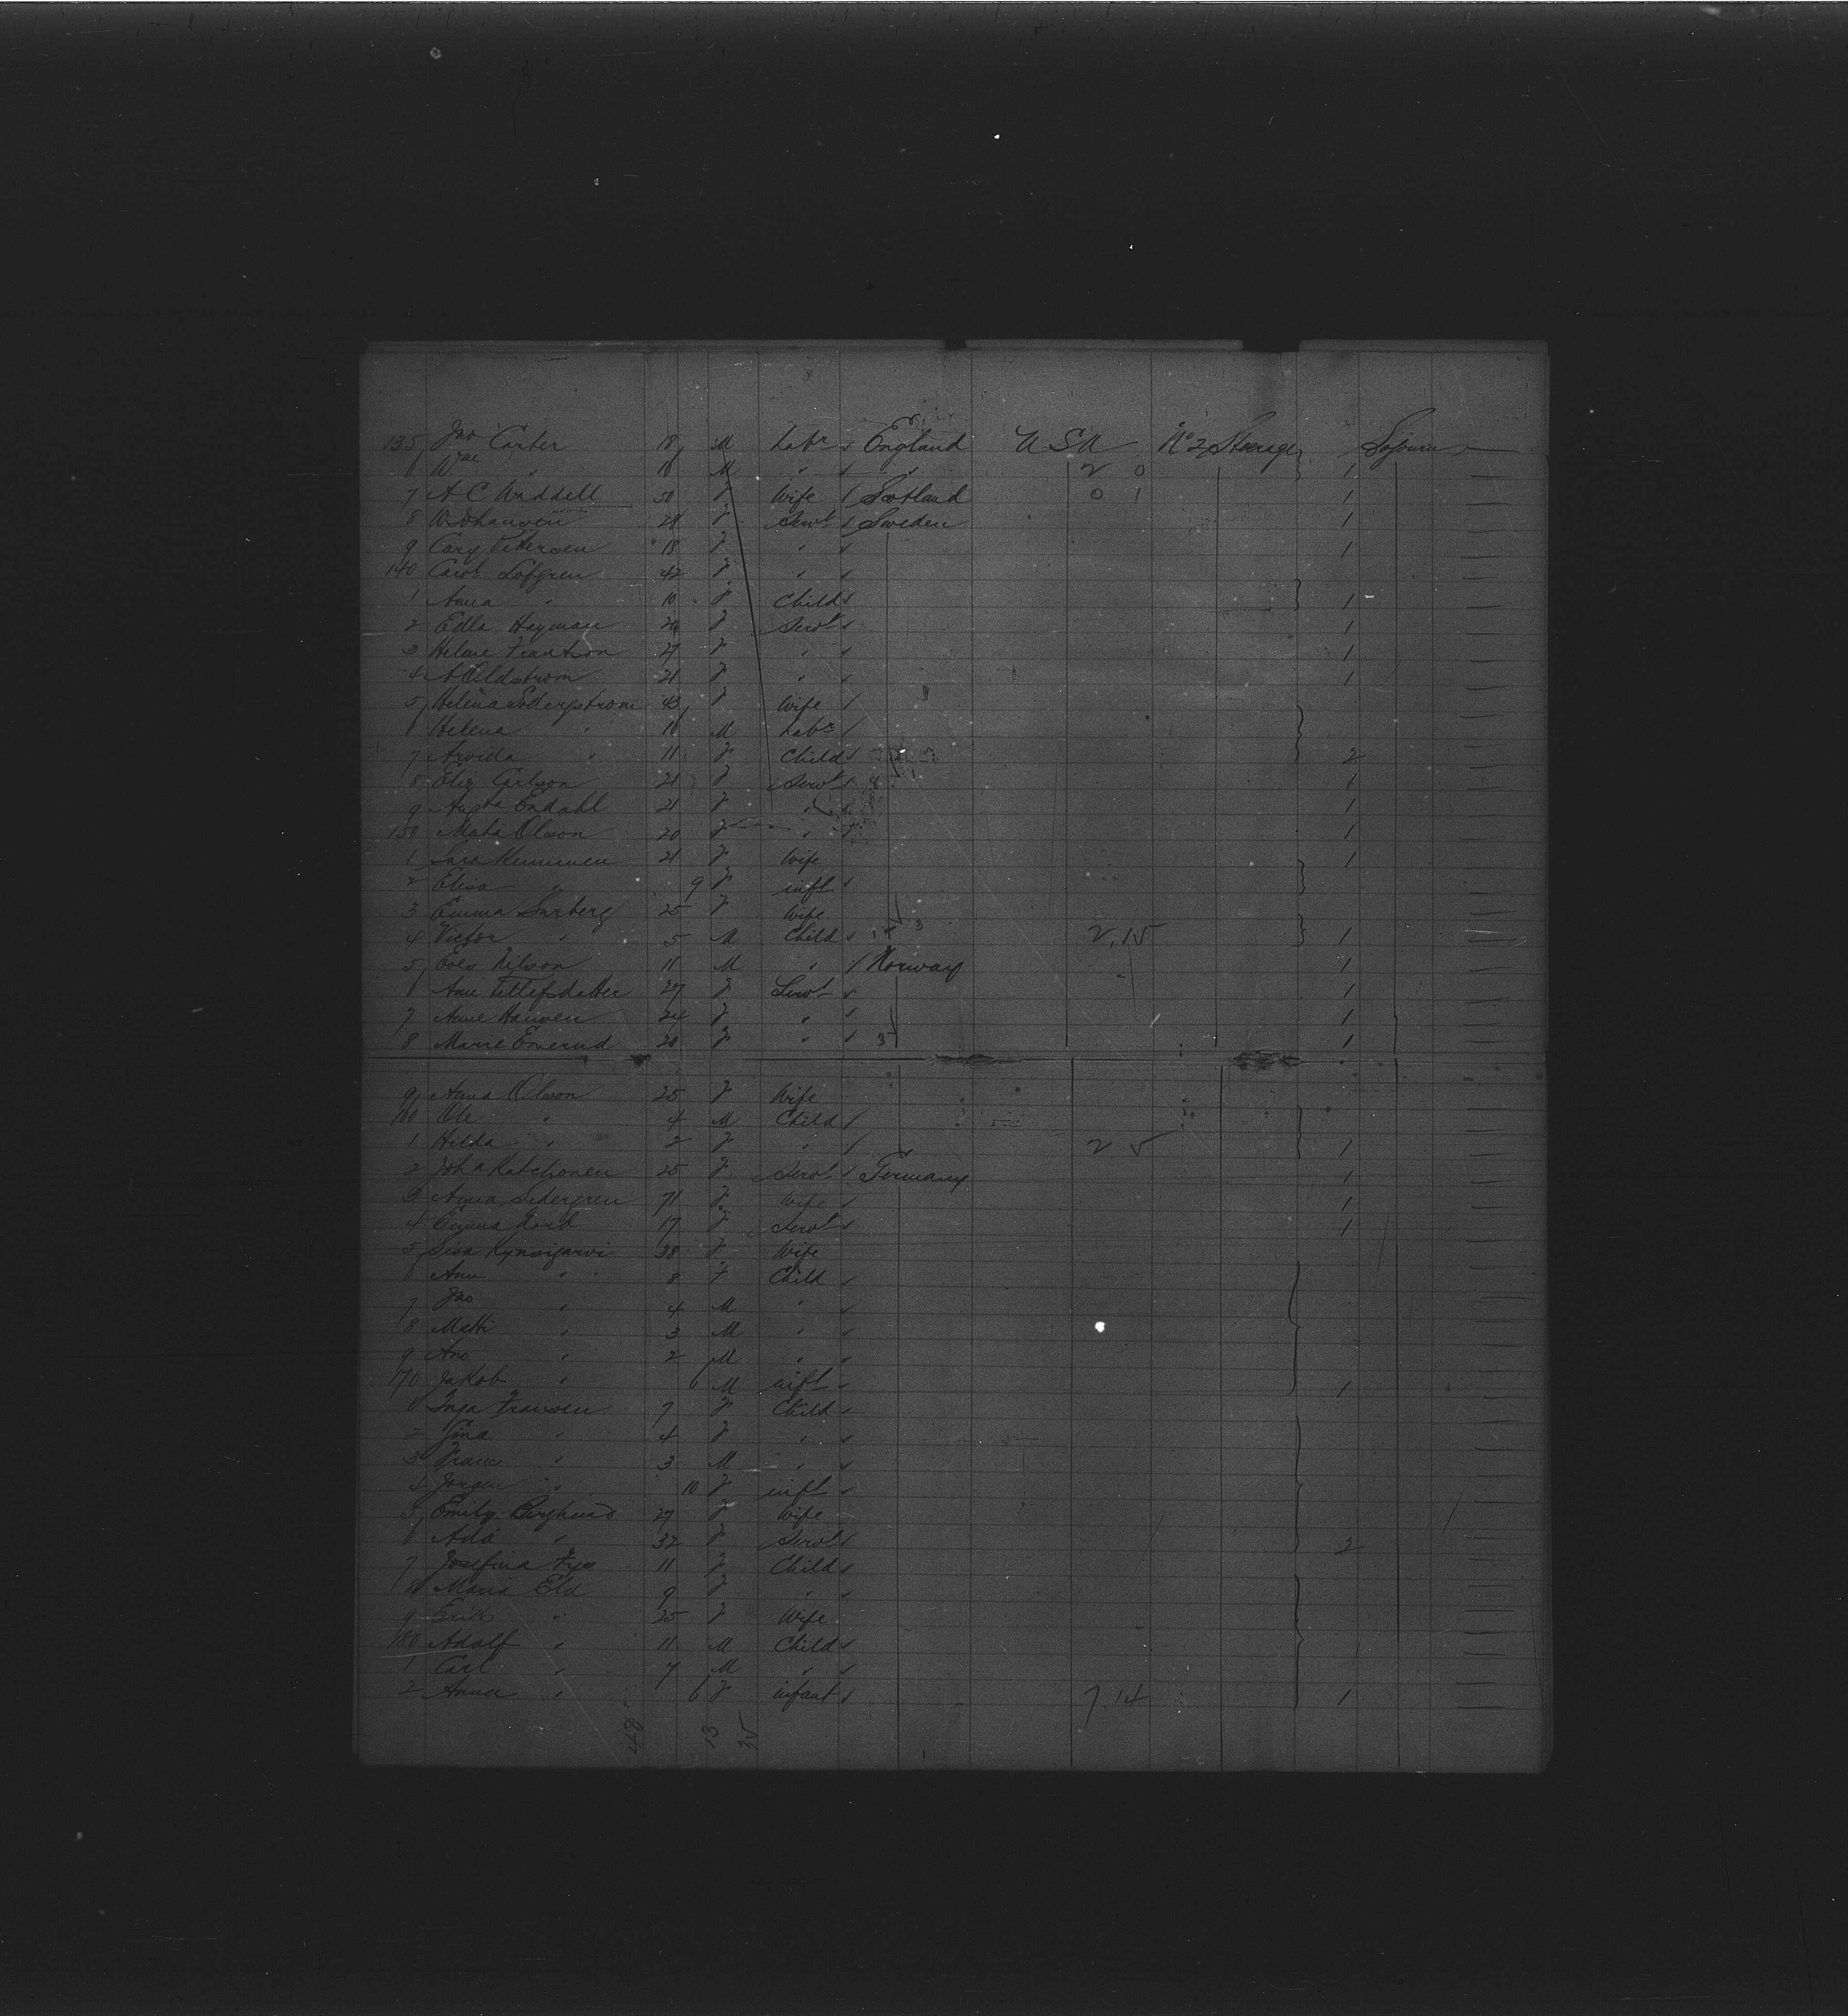 135 Jno Carter 18 M Labr England U S A No 2 Steerage Sojourn
6 Wm " 16 M " " 2 0 1
7 A C Waddell 50 F Wife Scotland 0 1 1
8 W Johansen 29 F Servt Sweden 1
9 Cary Pettersen 18 F " 1
140 Carol Lofgren 42 F "
1 Anna " 10 F Child 1
2 Edla Hayman 24 F Servt 1
3 27 F " 1
4 A Oldstrom 21 F " 1
5 Helena Soderstrom 43 F Wife
6 Helena " 16 M Labr
7 Arvida " 11 F Child 2
8 Eliz Carlson 21 F Servt 1
9 Augta Endahl 21 F " 1
150 Mata Olson 20 F " 1
1 Sara 21 F Wife 1
2 Elisa " 9 F inft
3 Emma Sarberg 25 F Wife
4 Victor " 5 M Child 14 3 2,15 1
5 Nelson 11 M " Norway 1
6 Ane Tellefsdatter 27 F Servt 1
7 Anne Hansen 24 F " 1
8 Marie Emerud 20 F " 3 1
9 Anna Olson 25 F Wife
160 Ole " 4 M Child
1 Hilda " 2 F " 2 5 1
2 Joha Katchonen 25 F Servt Germany 1
3 Anna Sedergren 71 F Wife 1
4 Emma Nord 17 F Servt 1
5 Lisa 38 F Wife
6 Ann " 8 F Child
7 Jno " 4 M "
8 Matti " 3 M "
9 " 2 M "
170 Jakob " 6 M inft 1
1 Inga Fransen 7 F Child
2 Gina " 4 F "
3 Franc " 3 M "
4 Jorgen " 10 F inft
5 Emily Berglund 27 F Wife
6 Ada " 32 F Servt 2
7 Josefina 11 F Child
8 Maria Eld 9 F "
9 Erik " 25 F Wife
180 Adolf " 11 M Child
1 Carl " 7 M "
2 Anna " 6 F infant 7.14 1
48 13 35